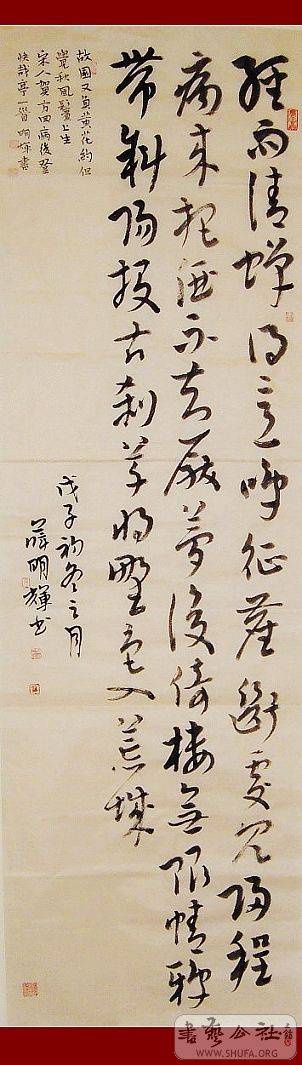 經雨清蟬得意鳴征塵斷處見歸程
病來把酒不知厭夢後倚樓無限情鴉
帶斜陽投古刹草將野色入荒城
故園又負黄花約但
覺秋風鬢上生
宋人賀方回病後登
快哉亭一首 明輝書
戊子初冬之月
薛明輝書
書藝公社
WWW.SHUFA.ORG